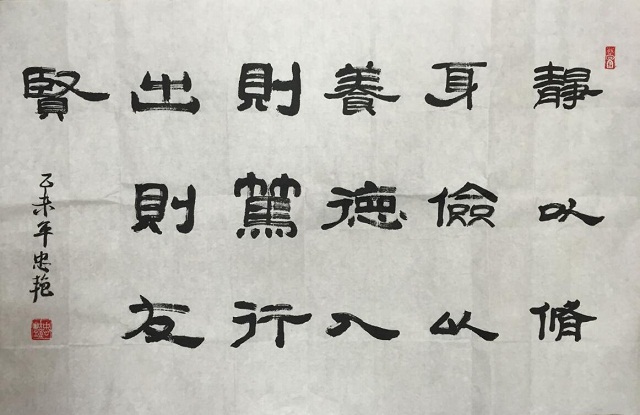 靜以脩
身儉以
養德入
則篤行
出則友
賢
乙未年忠艳